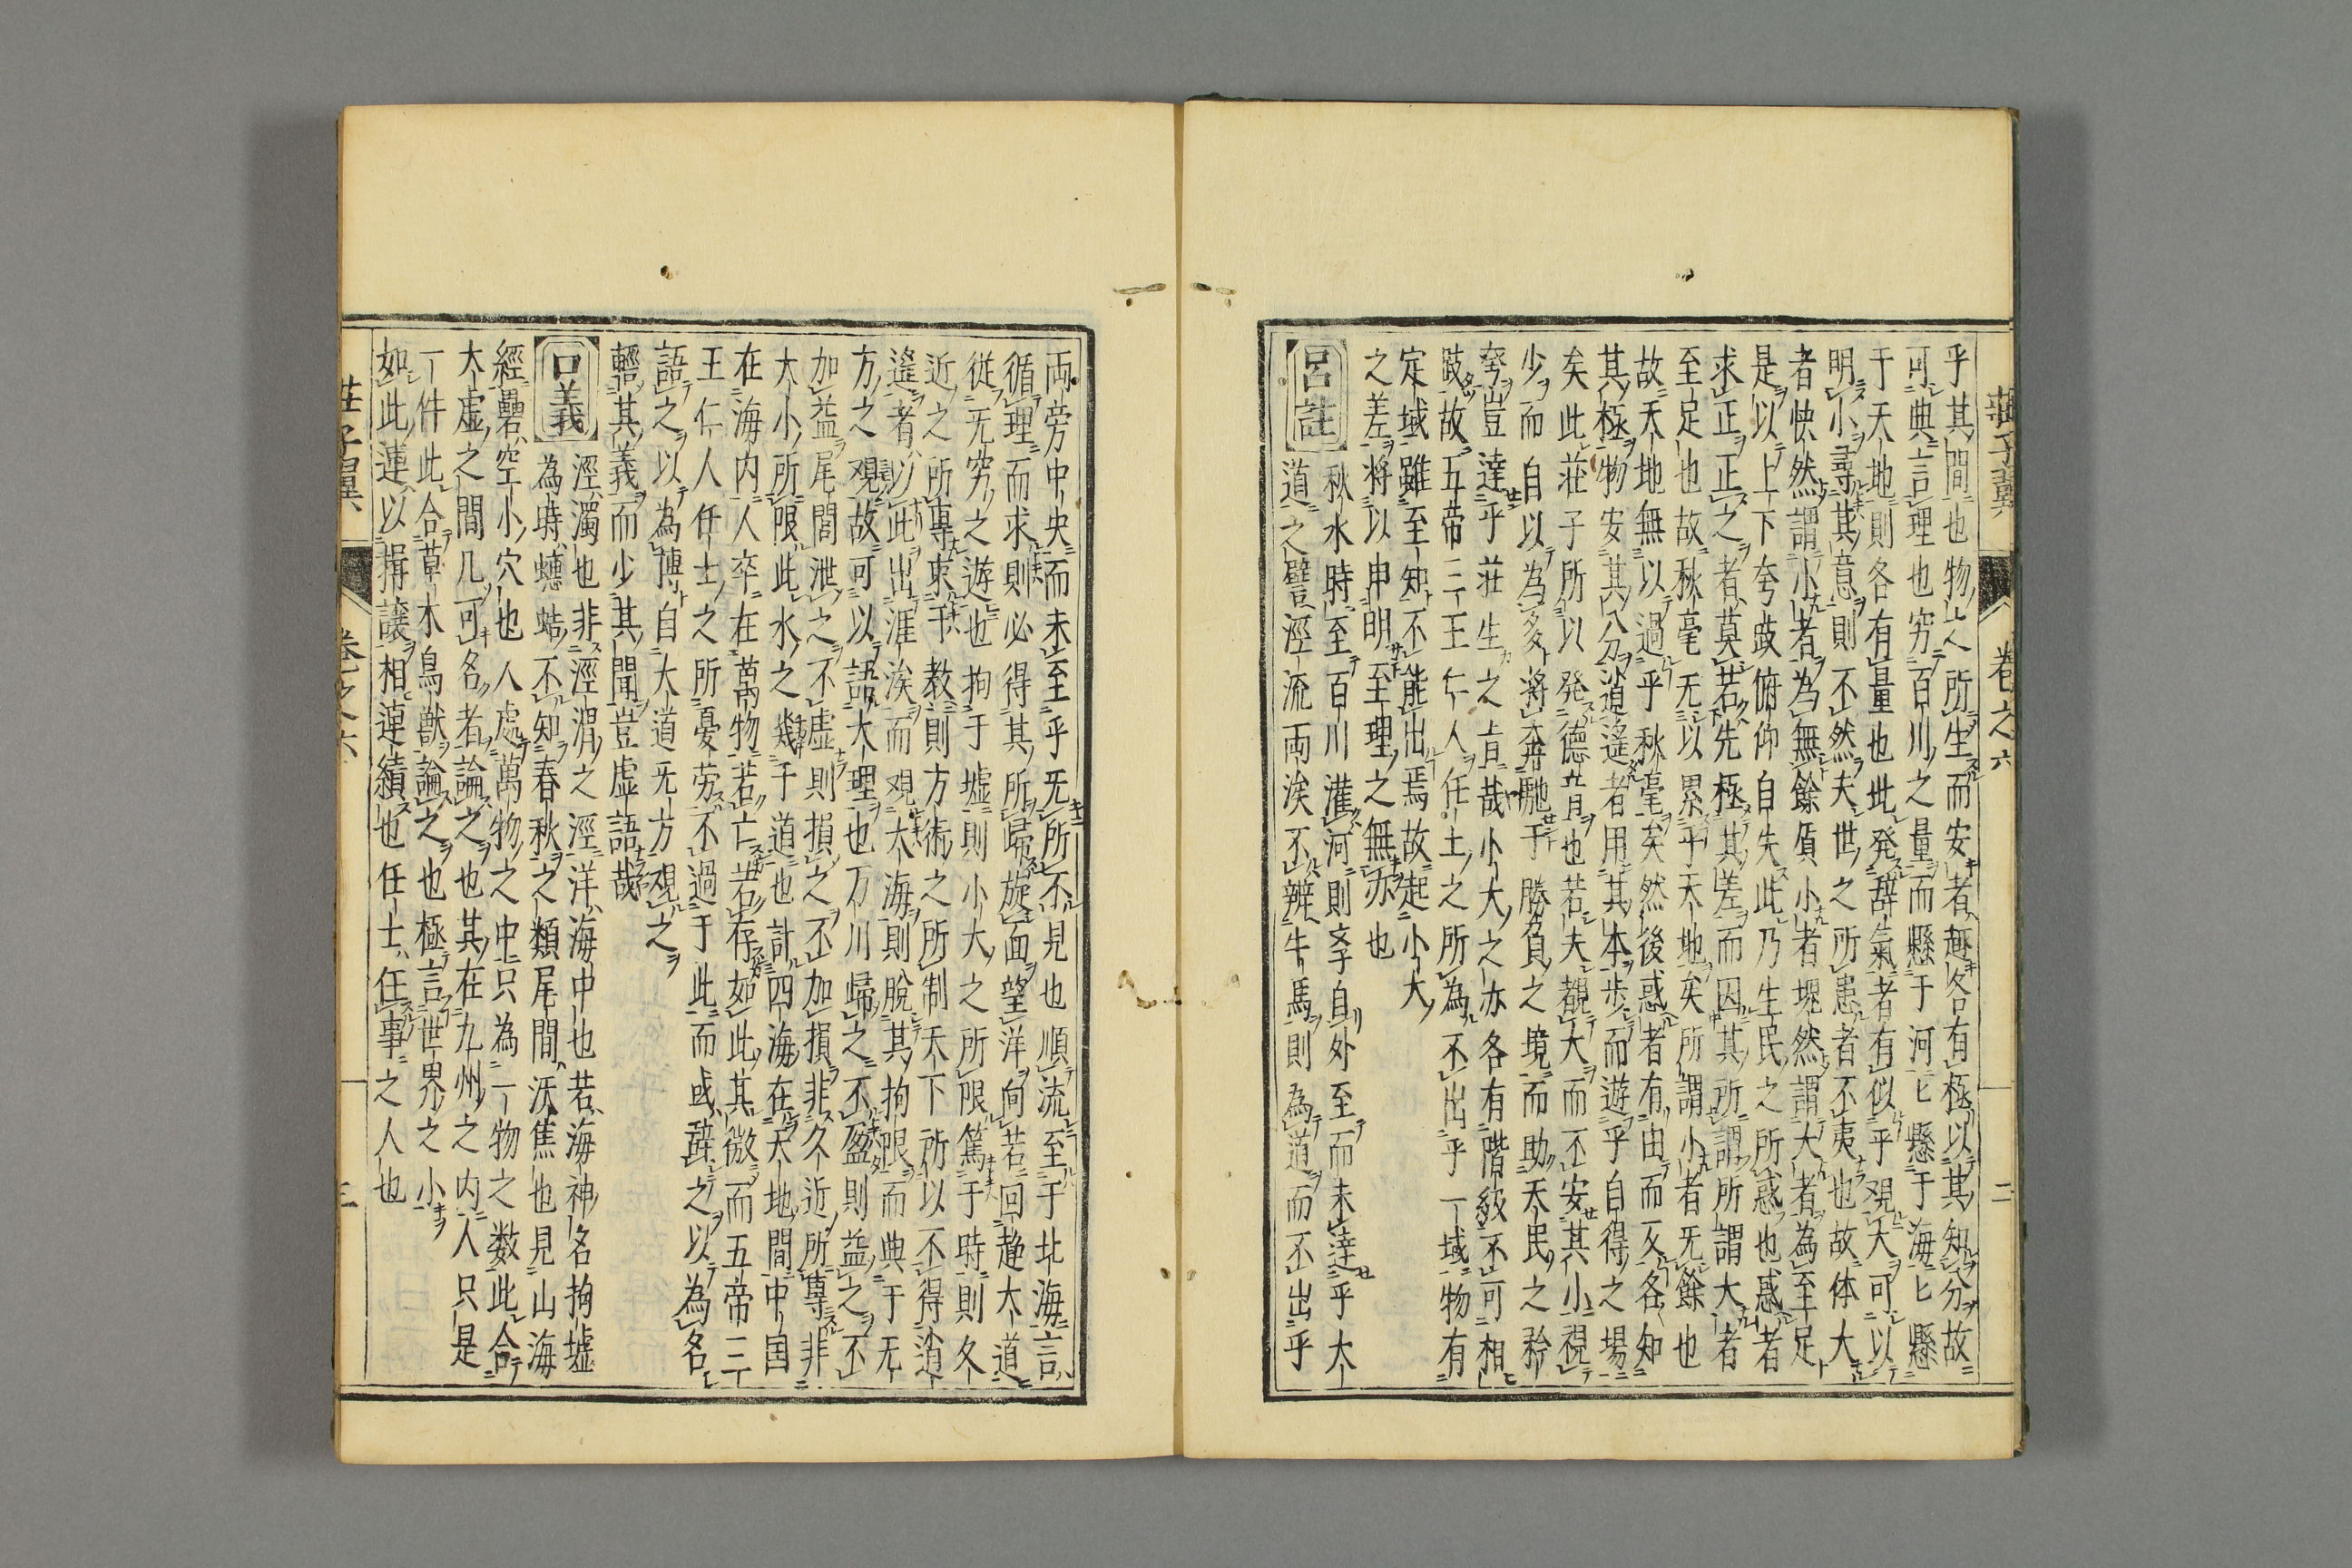 莊子翼 卷之六 二
乎其間也物人所生而安者趣各有極以其知分故
可典言理也窮百川之量而懸于河匕懸于海匕懸
于天地則各有量也此発辞氣者有似乎覌大可以
明小尋其意則不然夫世之所患者不夷也故体大
者怏然謂小者為無餘質小者塊然謂大者為至足
是以上下夸跂俯仰自失此乃生民之所惑也惑者
求正正之者莫若先極其差而因其所謂所謂大者
至足也故秋毫无以累乎天地矣所謂小者无餘也
故天地無以過乎秋毫矣然後惑者有由而反各知
其極物安其分逍遙者用其本歩而遊乎自得之場
矣此莊子所以発德音也若夫觀大而不安其小視
少而自以為多將奔馳于勝負之境而助天民之矜
夸豈達乎莊生之旨哉小大之亦各有階級不可相
跂故五帝三王仁人任士之所為不出乎一域物有
定域雖至知不能出焉故起小大
之差將以申明至理之無亦也
呂註 秋水時至百川灌河則孚自外至而未達乎大
道之譬涇流両涘不辨牛馬則為道而不出乎
両旁中央而未至乎旡所不見也順流至于北海言
循理而求則必得其所歸旋面望洋向若回趂大道
従无穷之遊也拘于墟則小大之所限篤于時則久
近之所專束于教則方術之所制天下所以不得逍
遙者以此出涯涘而覌大海則脫其拘限而典于无
方之覌故可以語大理也万川歸之不盈則益之不
加益尾閭泄之不虛則損之不加損非久近所專非
大小所限此水之幾于道也計四海在天地間中国
在海内人卒在萬物若亡若存如此其微而五帝三
王仁人任士之所憂劳不過于此而或辞之以為名
語之以為博自大道旡方覌之
輕其義而少其聞豈虛語哉
口義 涇濁也非涇渭之涇洋海中也若海神名拘墟
為時蟪蛄不知春秋之類尾閭沃焦也見山海
經礨空小穴也人處萬物之中只為一物之数此合
大虛之間凡可名者論之也其在九州之内人只是
一件此合草木鳥獸論之也極言世界之小
如此連以揖讓相連續也任士任事之人也
莊子翼 卷之六 三